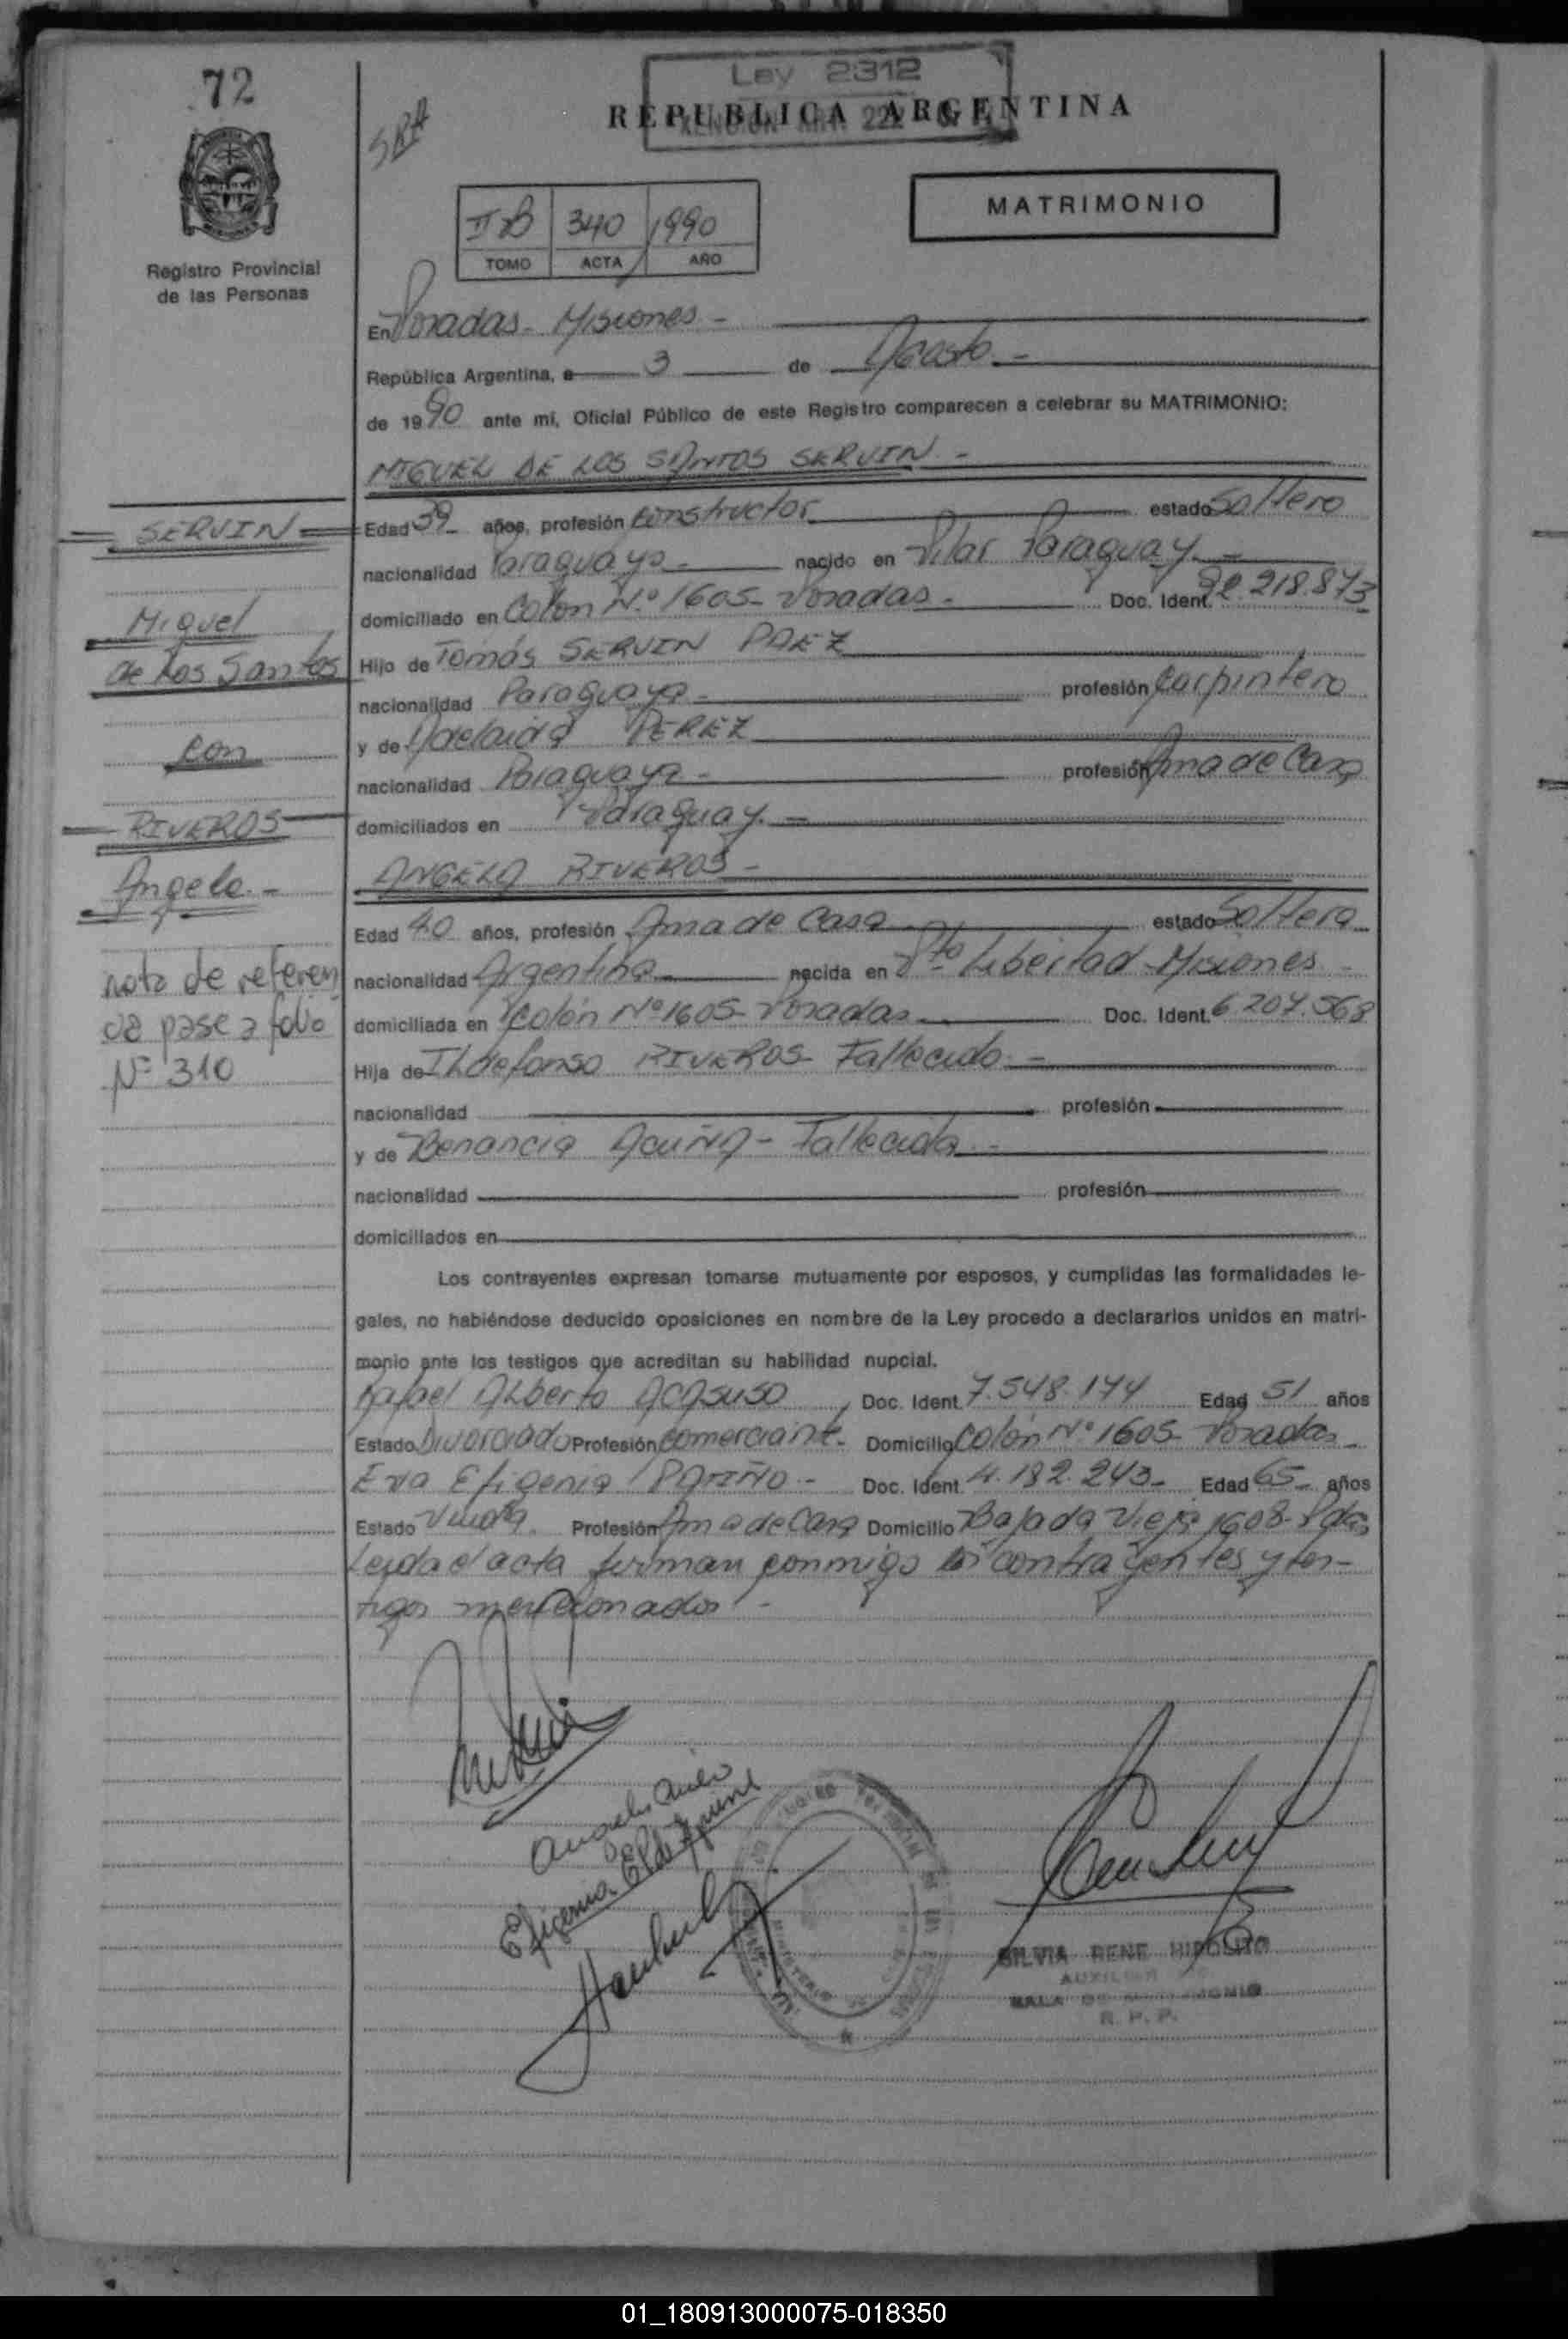 72
Ley 2312
REPUBLICA ARGENTINA
MATRIMONIO
II B 340 1990
TOMO ACTA AÑO
Registro Provincial
de las Personas
En Posadas - Misiones -
República Argentina, a 3 de Agosto -
de 1990 ante mí, Oficial Público de este Registro comparecen a celebrar su MATRIMONIO:
MIGUEL DE LOS SANTOS SERVIN -
SERVIN
Miguel
de Los Santos
con
RIVEROS
Angela -
nota de referen
cia pase a folio
Nº 310
Edad 39 años, profesión Constructor estado Soltero
nacionalidad Paraguaya - nacido en Pilar Paraguay -
domiciliado en Colón N.º 1605 - Posadas - Doc. Ident. 92.218.873
Hijo de Tomás SERVIN PAEZ
nacionalidad Paraguaya - profesión Carpintero
y de Adelaida PEREZ
nacionalidad Paraguaya - profesión Ama de Casa
domiciliados en Paraguay. -
ANGELA RIVEROS -
Edad 40 años, profesión Ama de Casa estado Soltera
nacionalidad Argentina nacida en Pto Libertad - Misiones -
domiciliada en Colón Nº 1605 - Posadas Doc. Ident. 6.207.568
Hija de Ildefonso RIVEROS - Fallecido -
nacionalidad profesión
y de Benancia ACUÑA - Fallecida -
nacionalidad profesión
domiciliados en
Los contrayentes expresan tomarse mutuamente por esposos, y cumplidas las formalidades le-
gales, no habiéndose deducido oposiciones en nombre de la Ley procedo a declararlos unidos en matri-
monio ante los testigos que acreditan su habilidad nupcial.
Rafael Alberto ACASUSO Doc. Ident. 7.548.174 Edad 51 años
Estado Divorciado Profesión Comerciante - Domicilio Colón Nº 1605 - Posadas -
Eva Efigenia PATIÑO - Doc. Ident. 4.182.243 - Edad 65 - años
Estado Viuda Profesión Ama de Casa Domicilio Bajada Vieja 1608 - Pdas
Leída el acta firman conmigo los contrayentes y tes-
tigos mencionados -
SILVIA RENE HIPOLITO
AUXILIAR
SALA DE MATRIMONIO
R. P. P.
01_180913000075-018350